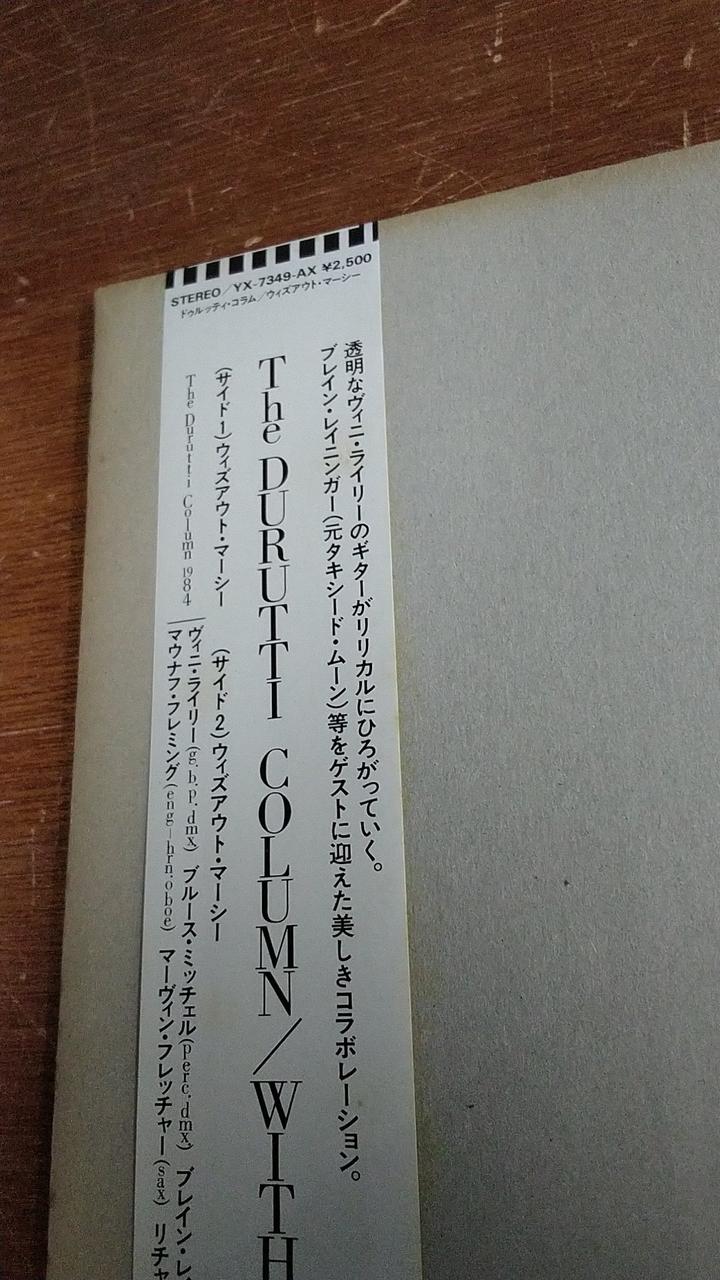 STEREO/YX-7349-AX ¥2,500
ドゥルッティ・コラム/ウィズアウト・マーシー
透明なヴィニ・ライリーのギターがリリカルにひろがっていく。
ブレイン・レイニンガー(元タキシード・ムーン)等をゲストに迎えた美しきコラボレーション。
The DURUTTI COLUMN/WITH
(サイド1)ウィズアウト・マーシー (サイド2)ウィズアウト・マーシー
The Durutti Column 1984
ヴィニ・ライリー(g. b. p. dmx) ブルース・ミッチェル(perc. dmx) ブレイン・レイ
マウナフ・フレミング(eng-hrn. oboe) マーヴィン・フレッチャー(sax) リチャ